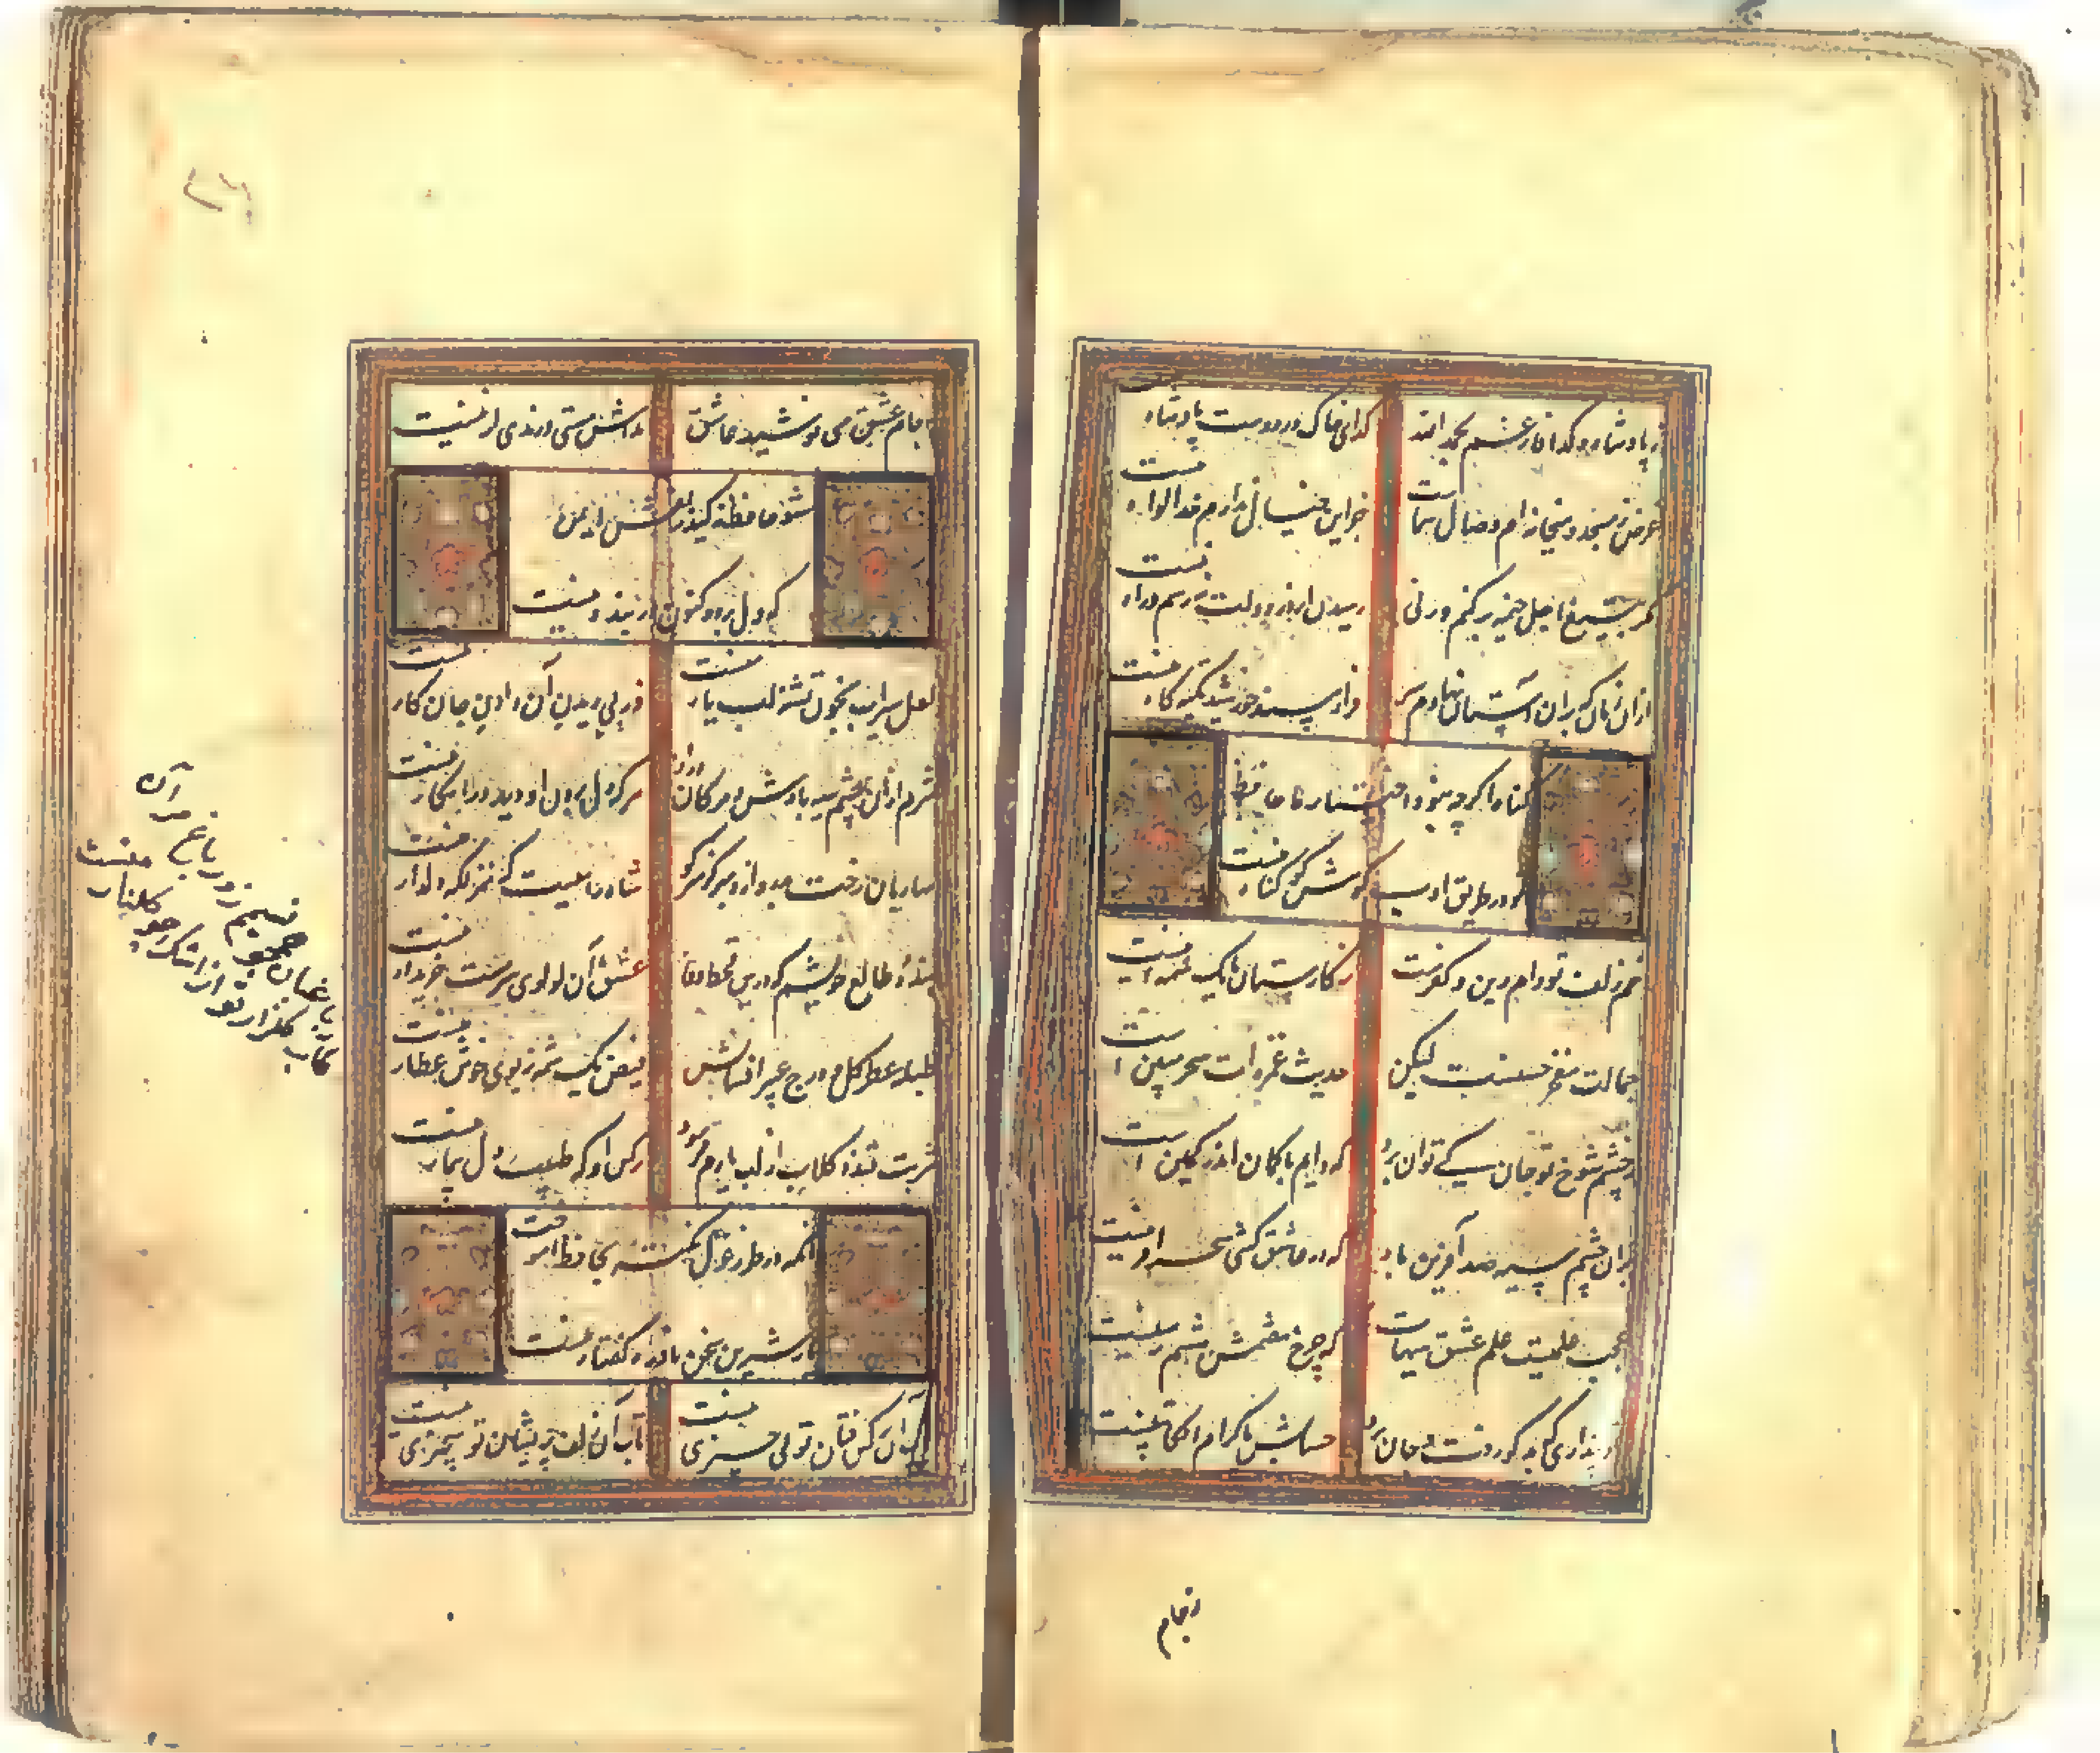 ز پادشاه و گدا فارغم بحمد الله گدای خاک در دوست پادشاه منست
غرض ز مسجد و میخانه ام وصال شماست جز این خیال ندارم خدا گواه منست
مگر بتیغ اجل خیمه برکنم ورنی رمیدن از در دولت نه رسم و راه منست
ازان زمان که بران آستان نهادم سر فراز مسند خورشید تکیه گاه منست
گناه اگر چه نبود اختیار ما حافظ
تو در طریق ادب کوش گو گناه منست
خم زلف تو دام دین و کفرست ز کارستان یک شمه اینست
جمالت معجز حسنست لیکن حدیث غمزه ات سحر مبین است
ز چشم شوخ تو جان کی توان برد که دایم با کمان اندر کمین است
بران چشم سیه صد آفرین باد که در عاشق کشی سحر آفرینست
عجب علمیست علم عشق هیهات که چرخ هفتمش هشتم زمینست
تو پنداری که بدگو رفت و جان برد حسابش با کرام الکاتبینست
ز جام
ز جام عشق می نوشید عاشق مدامش مستی و رندی ازینست
مشو حافظ ز کید زلفش ایمن
که دل برد و کنون در بند دینست
لعل سیراب بخون تشنه لب یار منست وز پی دیدن آن دادن جان کار منست
شرم ازان چشم سیه بادش و مژگان دراز هر که دل بردن او دید و در انکار منست
ساربان رخت بدروازه مبر کز سر کو شاه راهیست که منزلگه دلدار منست
بنده طالع خویشم که درین قحط وفا عشق آن لولوی سرمست خریدار منست
طبله عطر گل و درج عبیر افشانش فیض یک شمه ز بوی خوش عطار منست
شربت قند و گلاب از لب یارم فرمود نرگس او که طبیب دل بیمار منست
آنکه در طرز غزل نکته بحافظ آموخت
یار شیرین سخن نادره گفتار منست
تاب آن زلف پریشان تو بی چیزی نیست
باغبان همچو نسیم ز در باغ مران
کاب گلزار تو از اشک چو گلنار منست